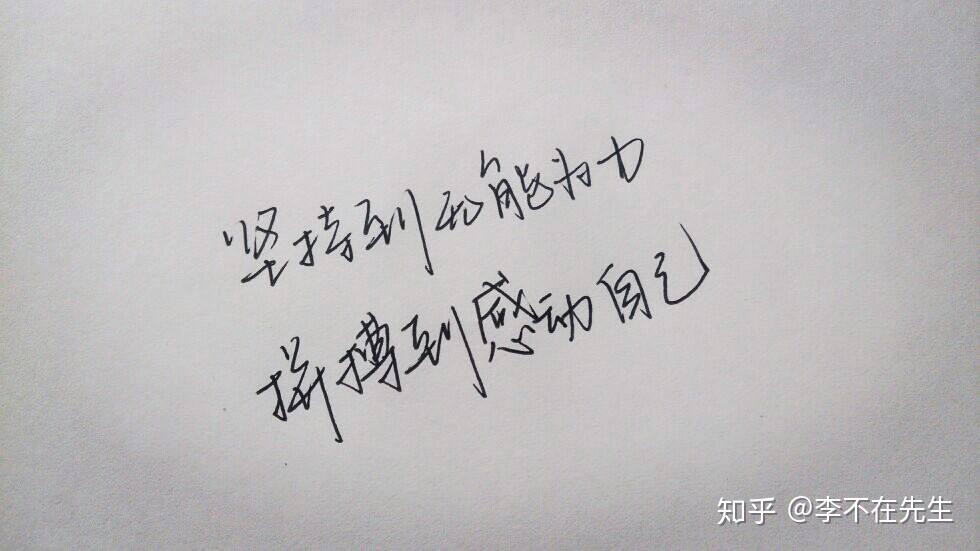 坚持到无能为力
拼搏到感动自己
知乎 @李不在先生